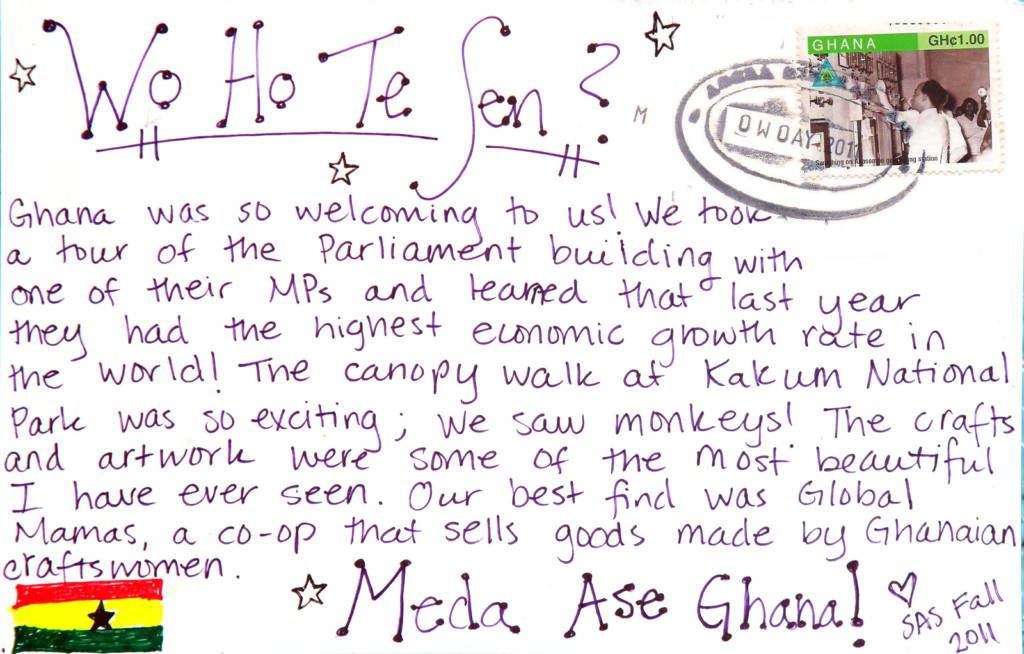 Wo Ho Te Sen?
GHANA GH¢1.00
M
0 W 0 DAY 2011
Ghana was so welcoming to us! We took
a tour of the Parliament building with
one of their MPs and learned that last year
they had the highest economic growth rate in
the world! The canopy walk at Kakum National
Park was so exciting; we saw monkeys! The crafts
and artwork were some of the most beautiful
I have ever seen. Our best find was Global
Mamas, a co-op that sells goods made by Ghanaian
craftswomen.
Meda Ase Ghana!
SAS Fall
2011